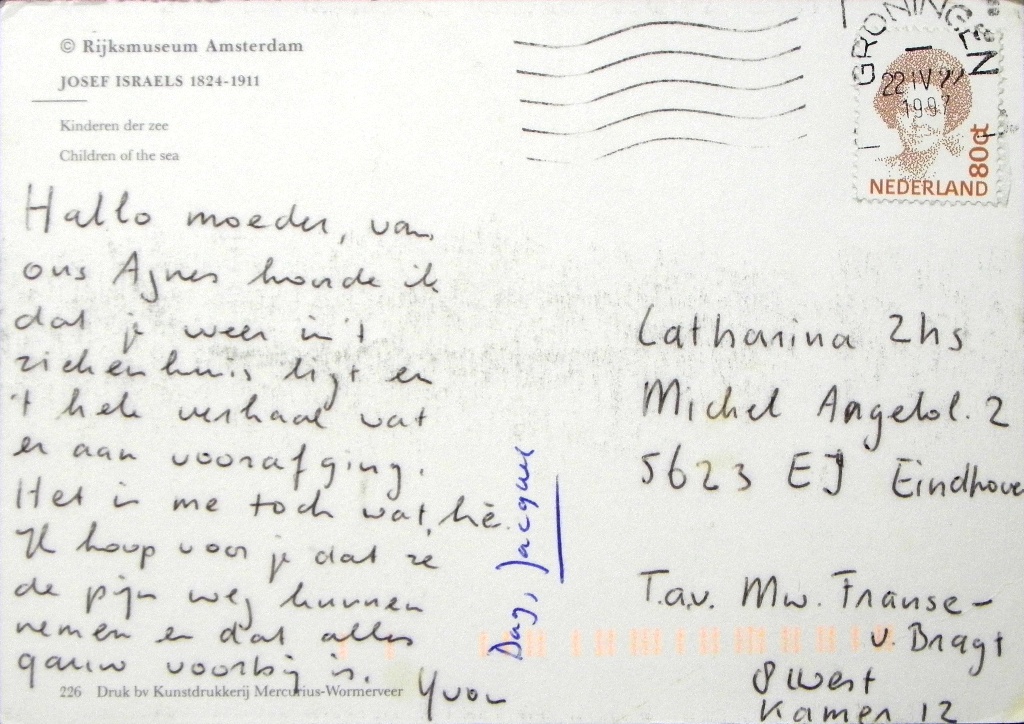 © Rijksmuseum Amsterdam
JOSEF ISRAELS 1824-1911
Kinderen der zee
Children of the sea
GRONINGEN
22 IV
1997
80ct
NEDERLAND
Hallo moeder, van
ons Agnes hoorde ik
dat je weer in 't
ziekenhuis ligt en
't hele verhaal wat
er aan voorafging.
Het is me toch wat, hè.
Ik hoop voor je dat ze
de pijn weg kunnen
nemen en dat alles
gauw voorbij is.
Yvon
Dag, Jacques
Catharina Zhs
Michel Angelol. 2
5623 EJ Eindhove
T.a.v. Mw. Franse-
v. Bragt
8 West
Kamer 12
226 Druk bv Kunstdrukkerij Mercurius-Wormerveer